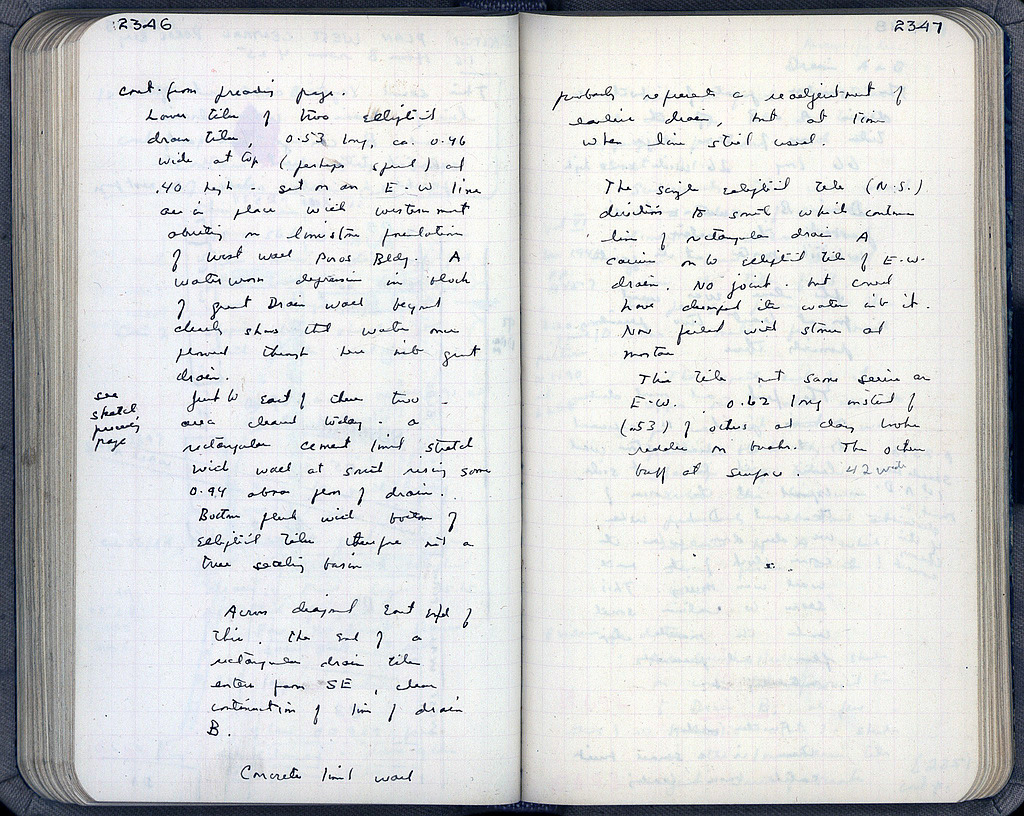 2346
cont. from preceding page.
Lower tiles of two elliptical
drain tiles, 0.53 long, ca. 0.46
wide at top (perhaps spread) and
.40 high - set on an E-W line
are in place with westernmost
abutting on limestone foundation
of west wall Poros Bldg. A
waterworn depression in block
of great Drain wall beyond
clearly shows that water once
flowed through here into great
drain.
see
sketch
preceding
page
Just to east of these two -
area cleared today - a
rectangular cement lined stretch
with wall at south rising some
0.94 above floor of drain.
Bottom flush with bottom of
elliptical tiles therefore not a
true settling basin
Across diagonal East end of
this, the end of a
rectangular drain tile
enters from SE, clear
continuation of line of drain
B.
Concrete lined wall
2347
probably represents a readjustment of
earlier drain, but at time
when line still used.
The single elliptical tile (N.S.)
direction to south which continues
line of rectangular drain A
comes on to elliptical tiles of E.-W.
drain. No joint - but could
have dumped its water into it.
Now filled with stones and
mortar
This tile not same series as
E-W. 0.62 long instead of
(0.53) of others and clay broken
redder on breaks. The others
buff at surface. 42 wide